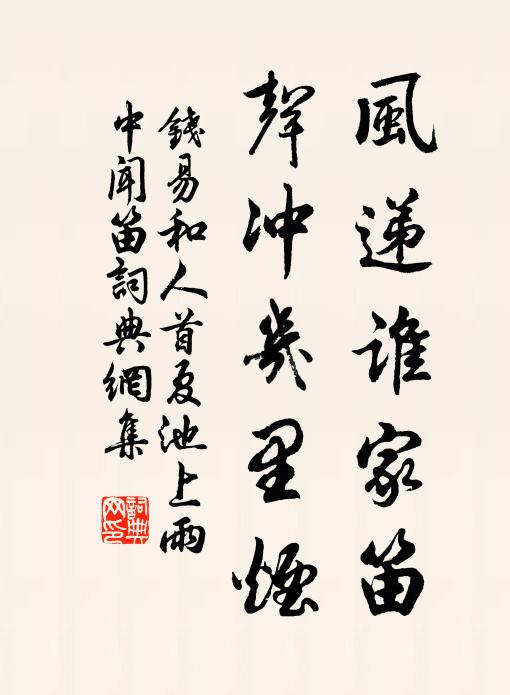 風递誰家笛
聲冲幾里煙
錢易和人首夏池上雨
中闻笛詞典網集
詞典
网印